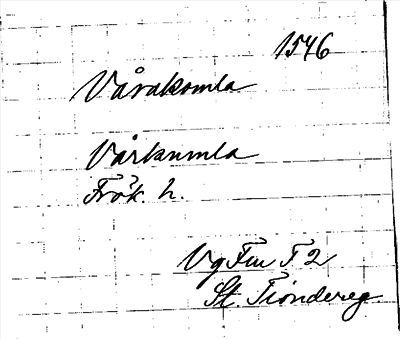 1546
Vårakomla
Vårkumla
Frök. h.
Vg Fiu T. 2
St. Tiondereg.